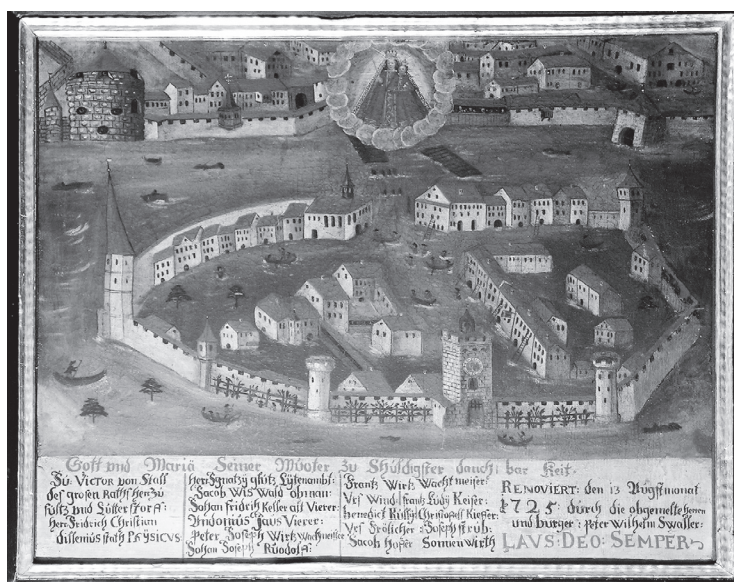 Gott vnd Mariä Seiner Muoter zu Schuldigster danck bar Keit.
Ju: VICTOR von Stall
des großen Raths Herr zu
soltz vnd Lüterstorf:
Herr Fridrich Christian
dissenius stath PhYSICVS
Herr Ignatzy glutz Lütenambt:
Jacob Wis Wald obman:
Johan fridrich Keller alt Vierer:
Andonius Jaus Vierer:
Peter Joseph Wirtz Wachmeister
Johan Joseph Ruodolf:
Frantz Wirtz Wachtmeister:
Vrs Windl: frantz Ludy Keiser:
benedict Christoffell Kieffer:
Vrs Frölicher: Joseph strub:
Jacob Hoffer Sonnen Wirth
RENOVIERT: den 13 Augstmonat
1725: durch die obgemelte Heren
und burger: Peter Wilhelm Swaller:
LAVS: DEO: SEMPER